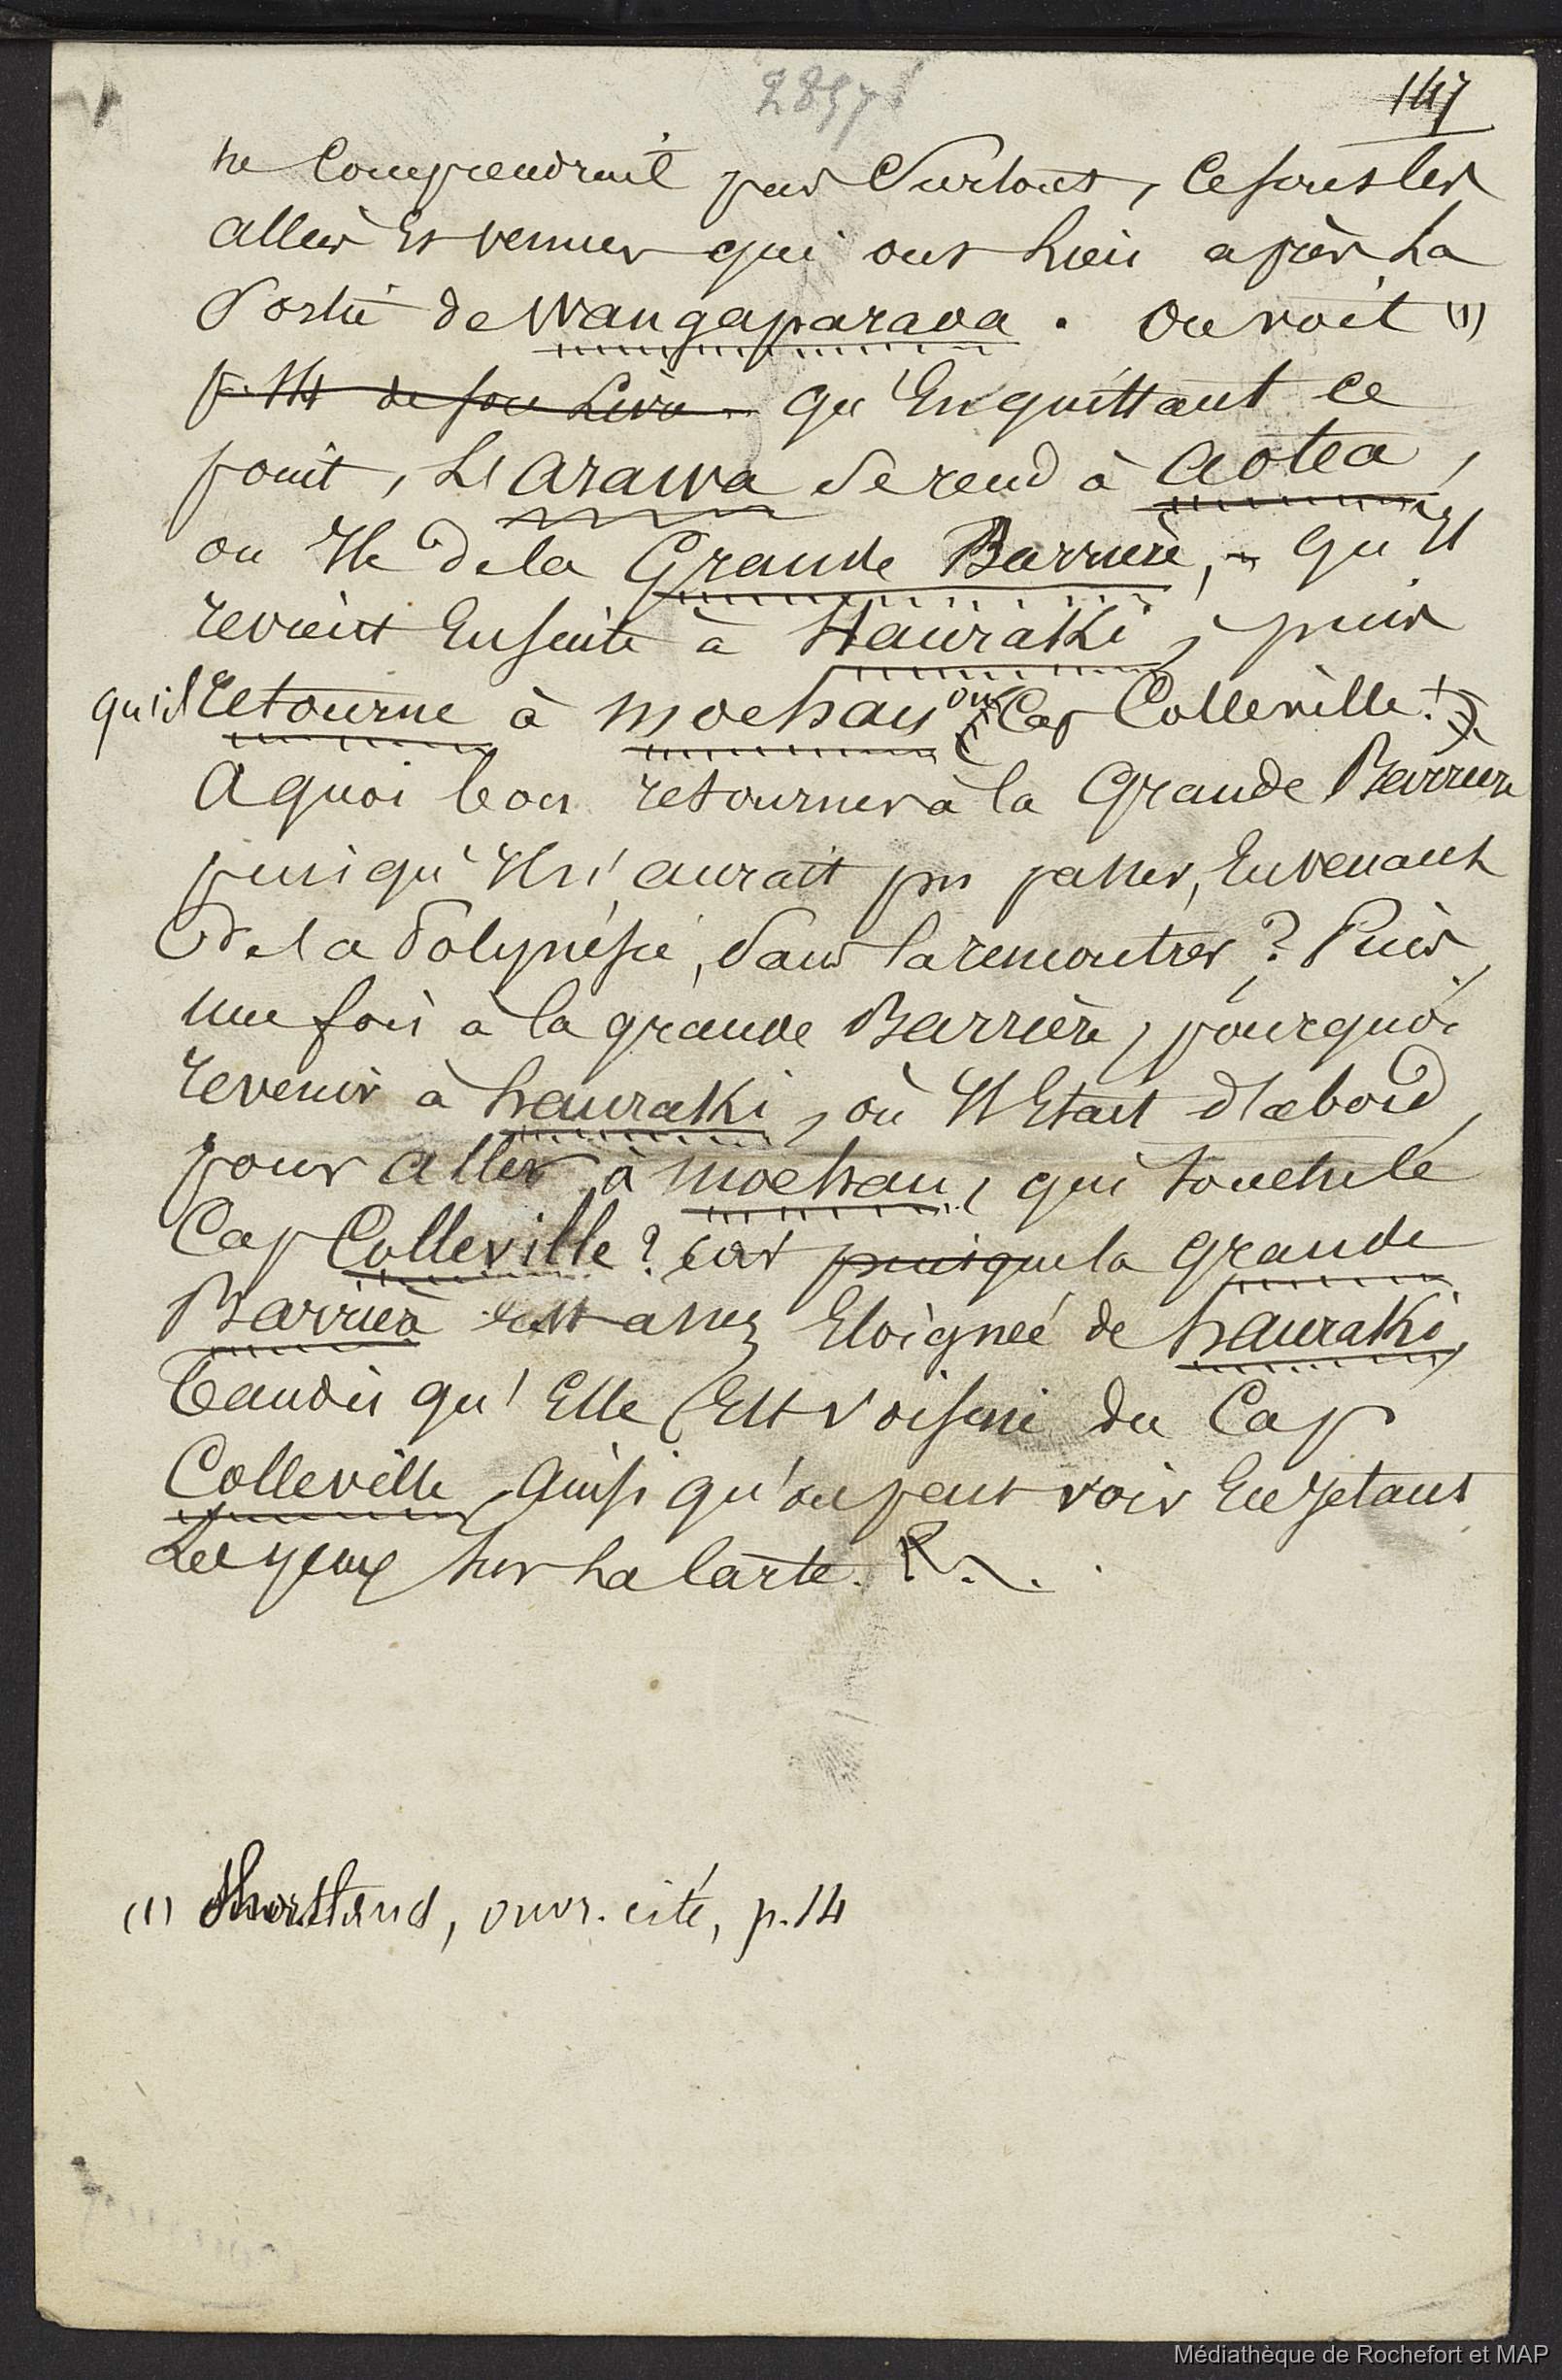 147
ne comprendrait pas surtout, ce sont les
allées et venues qui ont lieu après la
sortie de Wangaparava. On voit (1)
p. 14 de son Livre qu'en quittant ce
point, L'arawa se rend à aotea,
ou Ile de la Grande Barrière, qu'il
revient ensuite à Hauraki, puis
qu'il retourne à moehau ou (Cap Colleville!).
A quoi bon retourner à la Grande Barrière
puisqu'il n'aurait pu passer, en venant
de la Polynésie, sans la rencontrer? Puis,
une fois à la grande Barrière, pourquoi
revenir à hauraki, où il était d'abord,
pour aller à moehau, qui touche le
Cap Colleville? car puisque la grande
Barrière est assez éloignée de hauraki,
tandis qu'elle est voisine du Cap
Colleville, ainsi qu'on peut voir en jetant
Les yeux sur la carte.
(1) Shortland, ouvr. cité, p. 14
Médiathèque de Rochefort et MAP